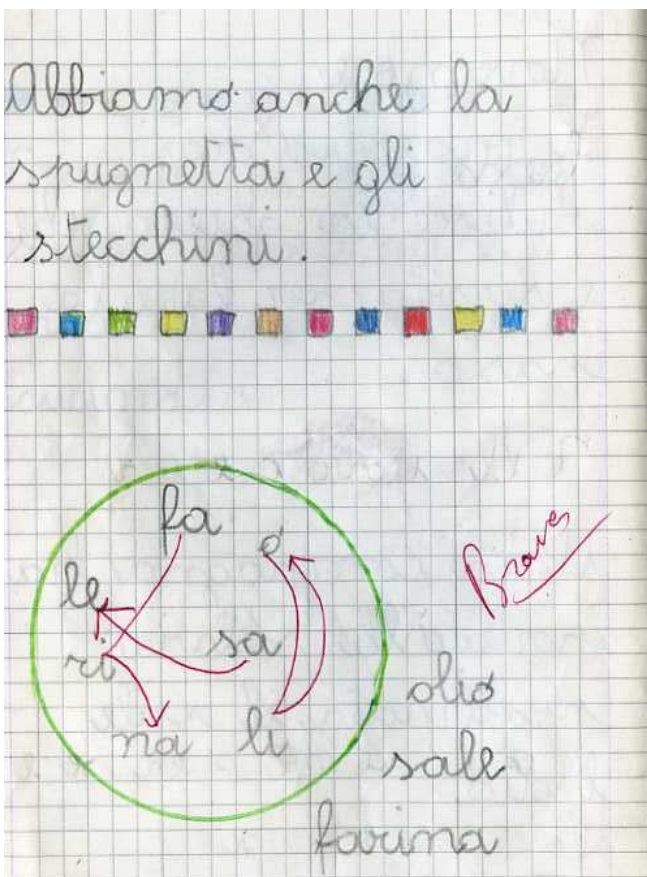 Abbiamo anche la
spugnetta e gli
stecchini.
fa
o
le
sa
ri
na li
olio
sale
farina